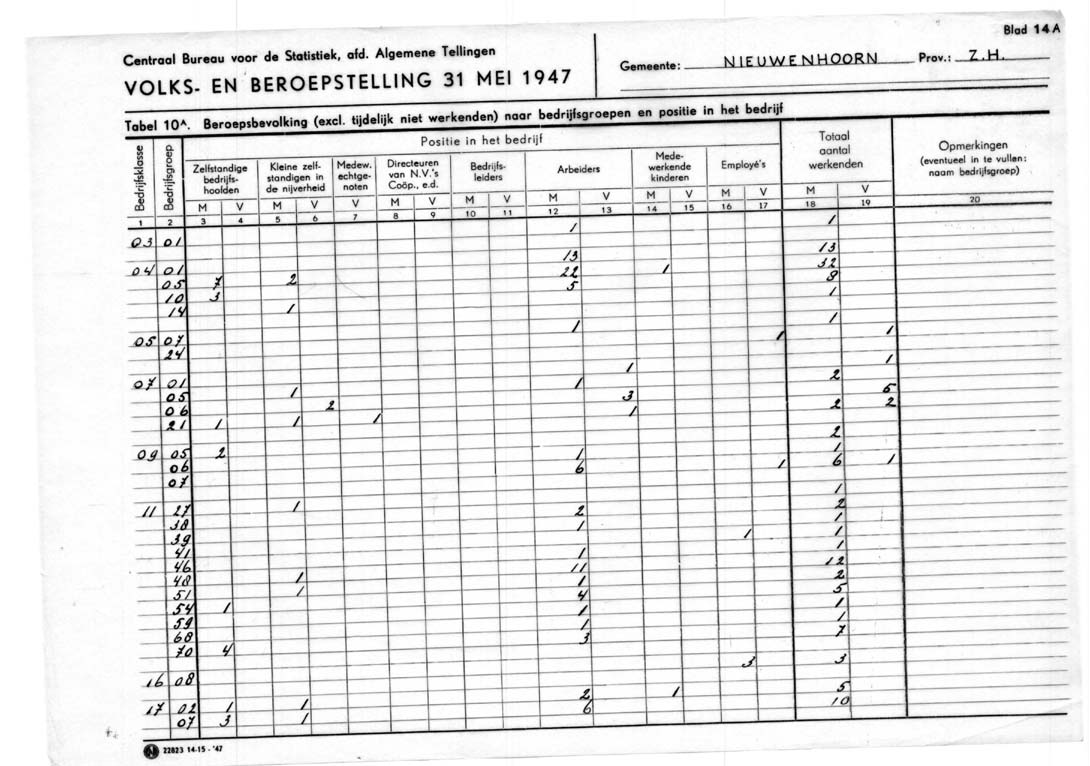 Blad 14A
Centraal Bureau voor de Statistiek, afd. Algemene Tellingen
VOLKS- EN BEROEPSTELLING 31 MEI 1947
Gemeente: NIEUWENHOORN Prov.: Z.H.
Tabel 10ᴬ. Beroepsbevolking (excl. tijdelijk niet werkenden) naar bedrijfsgroepen en positie in het bedrijf
Bedrijfsklasse
Bedrijfsgroep
Positie in het bedrijf
Zelfstandige
bedrijfs-
hoofden
Kleine zelf-
standigen in
de nijverheid
Medew.
echtge-
noten
Directeuren
van N.V.'s
Coöp., e.d.
Bedrijfs-
leiders
Arbeiders
Mede-
werkende
kinderen
Employé's
Totaal
aantal
werkenden
Opmerkingen
(eventueel in te vullen:
naam bedrijfsgroep)
M V M V V M V M V M V M V M V M V
1 2 3 4 5 6 7 8 9 10 11 12 13 14 15 16 17 18 19 20
03 01 1 1
04 01 13 13
05 7 2 22 1 32
10 3 5 8
14 1 1
05 07 1 1
24 1 1
07 01 1 1
05 1 1 2
06 2 3 5
21 1 1 1 1 2 2
09 05 2 2
06 1 1
07 6 1 6 1
11 27 1 1
38 2 2
39 1 1
41 1 1
46 1 1
48 1 11 12
51 1 1 2
54 1 4 5
59 1 1
68 1 1
70 4 3 7
16 08 3 3
17 02 1 1 2 1 5
07 3 1 6 10
N 22823 14-15-'47